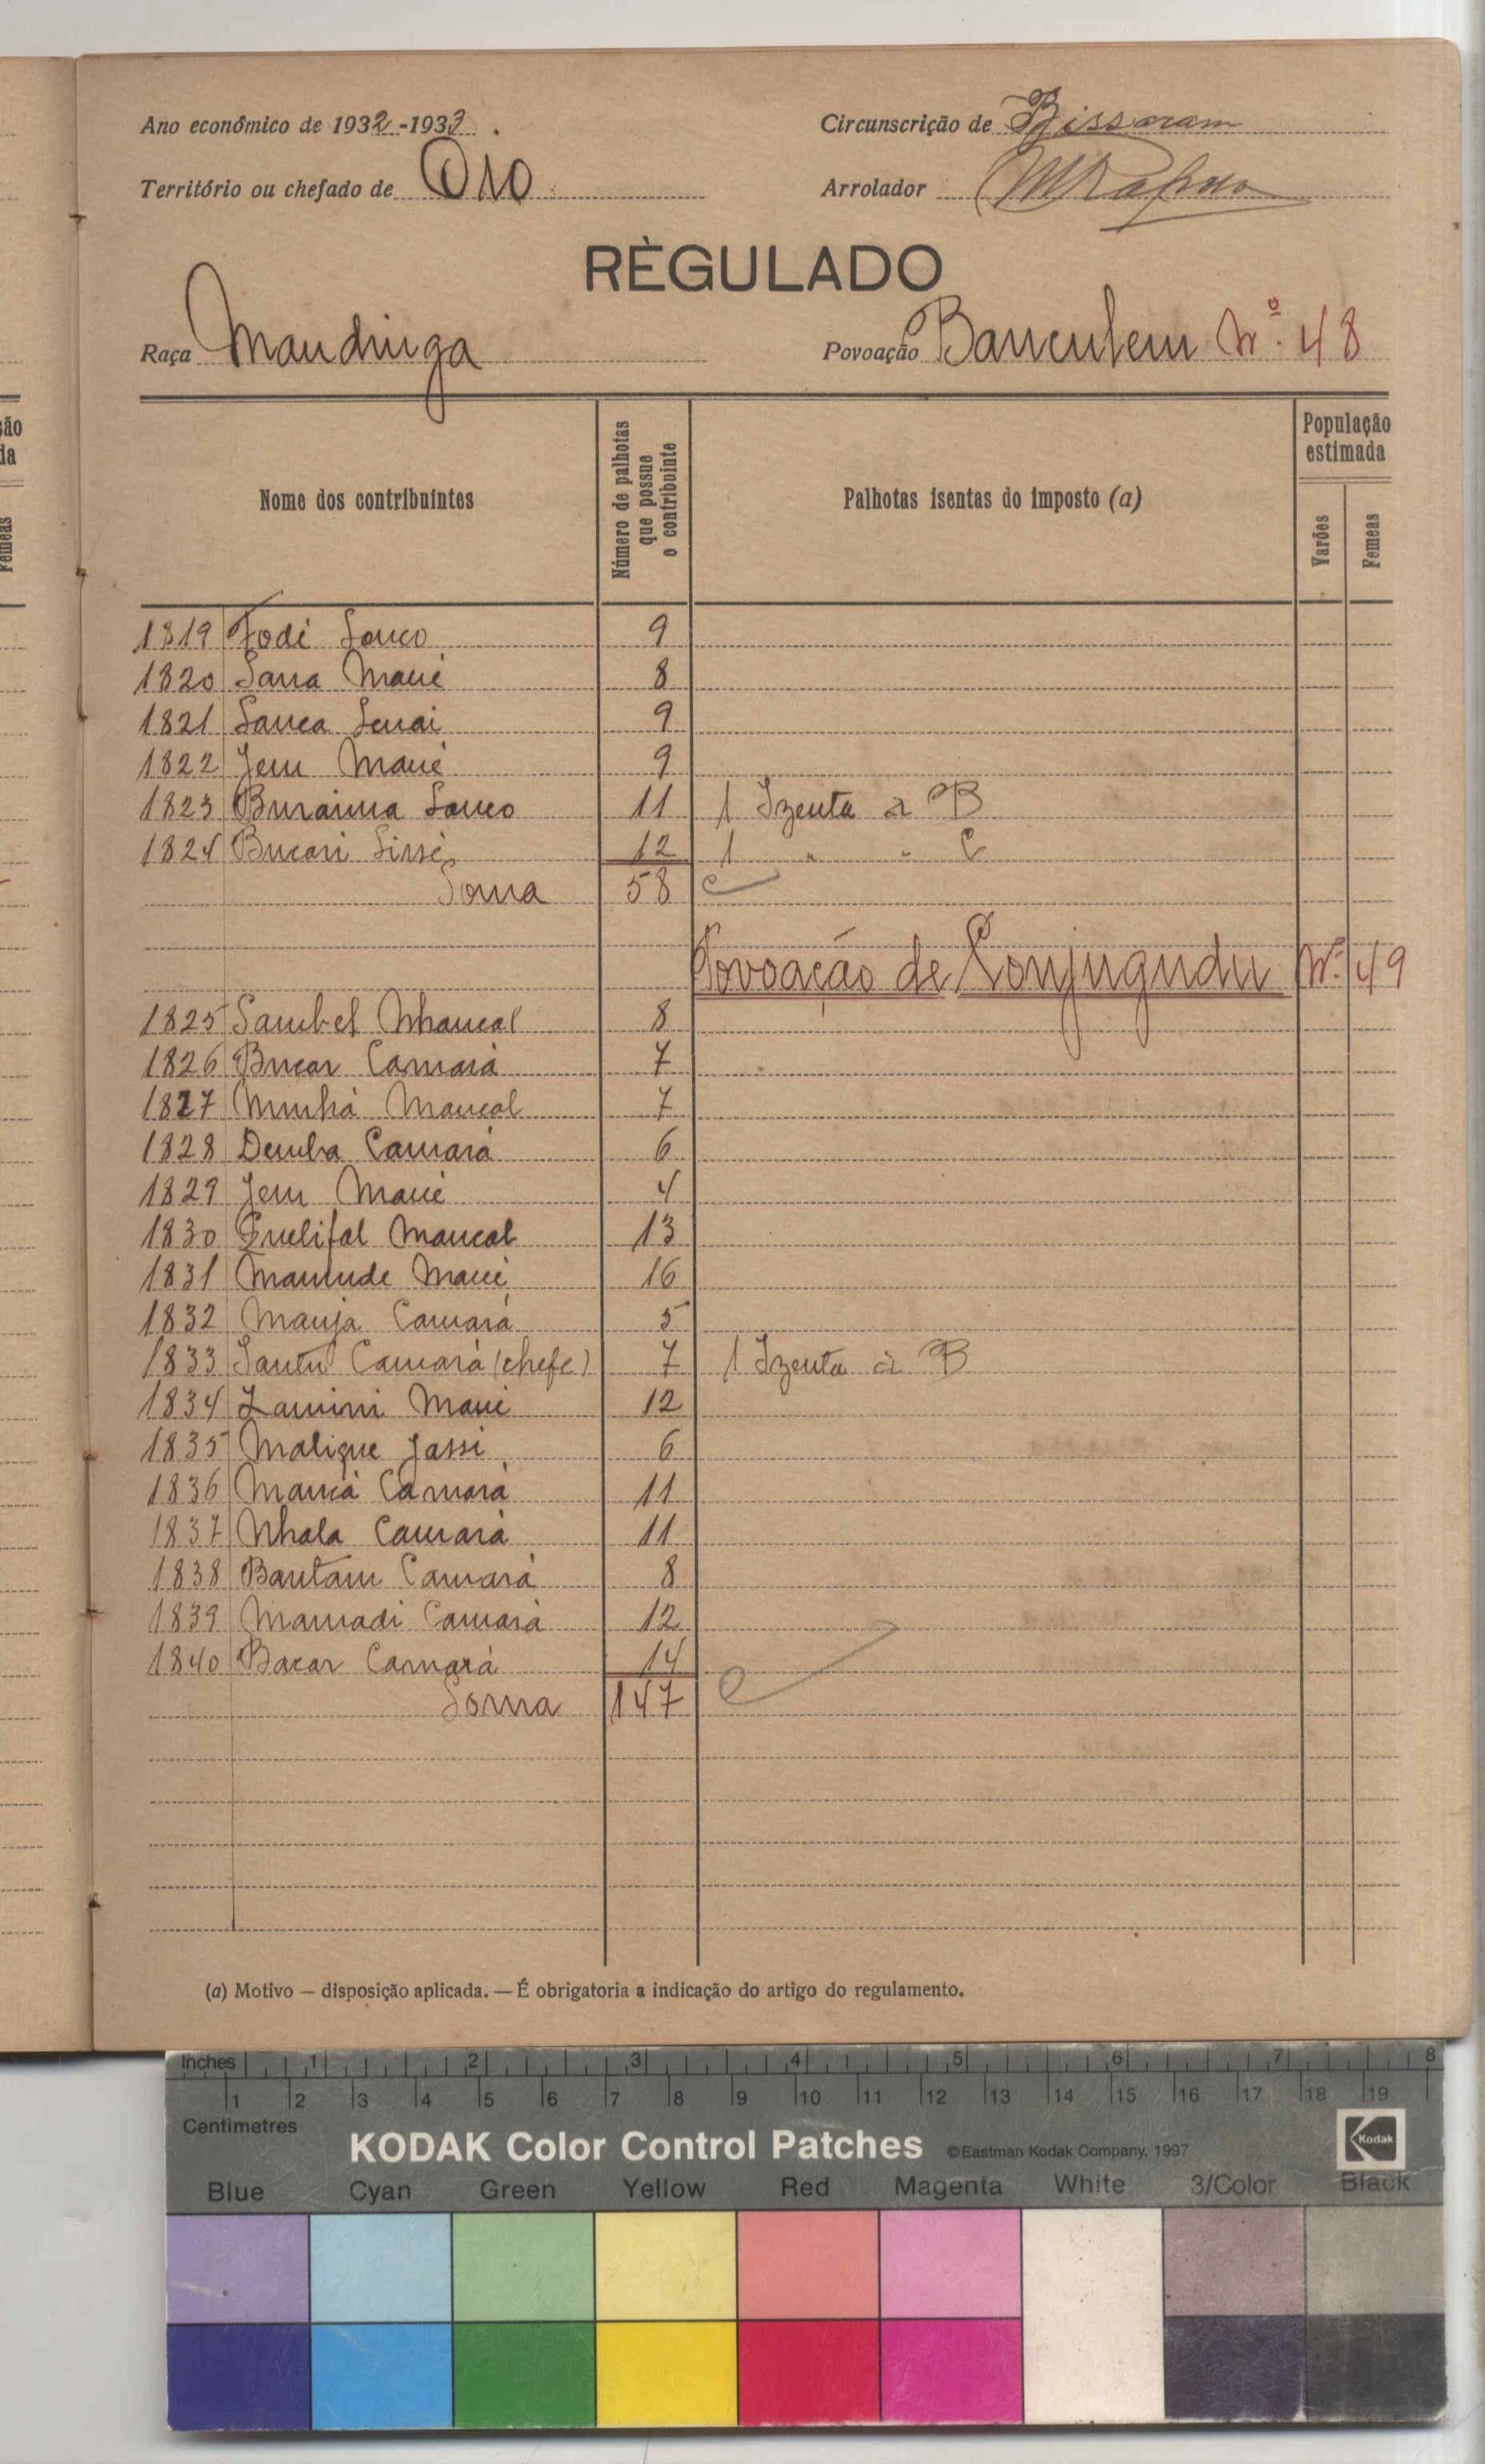 Ano económico de 1932-1933.
Circunscrição de Bissoram
Território ou chefado de Oio
Arrolador
RÈGULADO
Raça Mandinga
Povoação Banculem Nº 48
Nome dos contribuintes
Número de palhotas que possue o contribuinte
Palhotas isentas do imposto (a)
População estimada
Varões
Femeas
1819 Fodé Sanco 9
1820 Sana Mané 8
1821 Sanca Senai 9
1822 Jem Mané 9
1823 Buraima Sanco 11 1 Izenta a B
1824 Bucari Sissé 12 1 " " C
Soma 58
Povoação de Conjugudu Nº 49
1825 Sambel Nhancal 8
1826 Bucar Camará 7
1827 Munhá Mancal 7
1828 Demba Camará 6
1829 Jem Mané 4
1830 Quelifal Mancal 13
1831 Mamude Mané 16
1832 Manja Camará 5
1833 Santu Camará (chefe) 7 1 Izenta a B
1834 Lamini Mané 12
1835 Malique Jassi 6
1836 Mancá Camará 11
1837 Nhala Camará 11
1838 Bantam Camará 8
1839 Mamadi Camará 12
1840 Bacar Camará 14
Soma 147
(a) Motivo — disposição aplicada. — É obrigatoria a indicação do artigo do regulamento.
ão
da
Femeas
Inches 1 2 3 4 5 6 7 8
1 2 3 4 5 6 7 8 9 10 11 12 13 14 15 16 17 18 19
Centimetres
KODAK Color Control Patches ©Eastman Kodak Company, 1997 Kodak
Blue Cyan Green Yellow Red Magenta White 3/Color Black